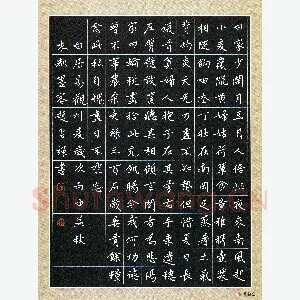 田家少閑月五月人倍忙夜來南風起
小麥覆隴黃婦姑荷簞食童稚攜壺漿
相隨餉田去丁壯在南岡足蒸暑土氣
背灼炎天光力盡不知熱但惜夏日長
復有貧婦人抱子在其旁右手秉遺穗
左臂懸敝筐聽其相顧言聞者為悲傷
家田輸稅盡拾此充飢腸今我何功德
曾不事農桑吏祿三百石歲晏有餘糧
念此私自愧盡日不能忘
白居易觀刈麥歲次丙申孟秋
墨客趙書